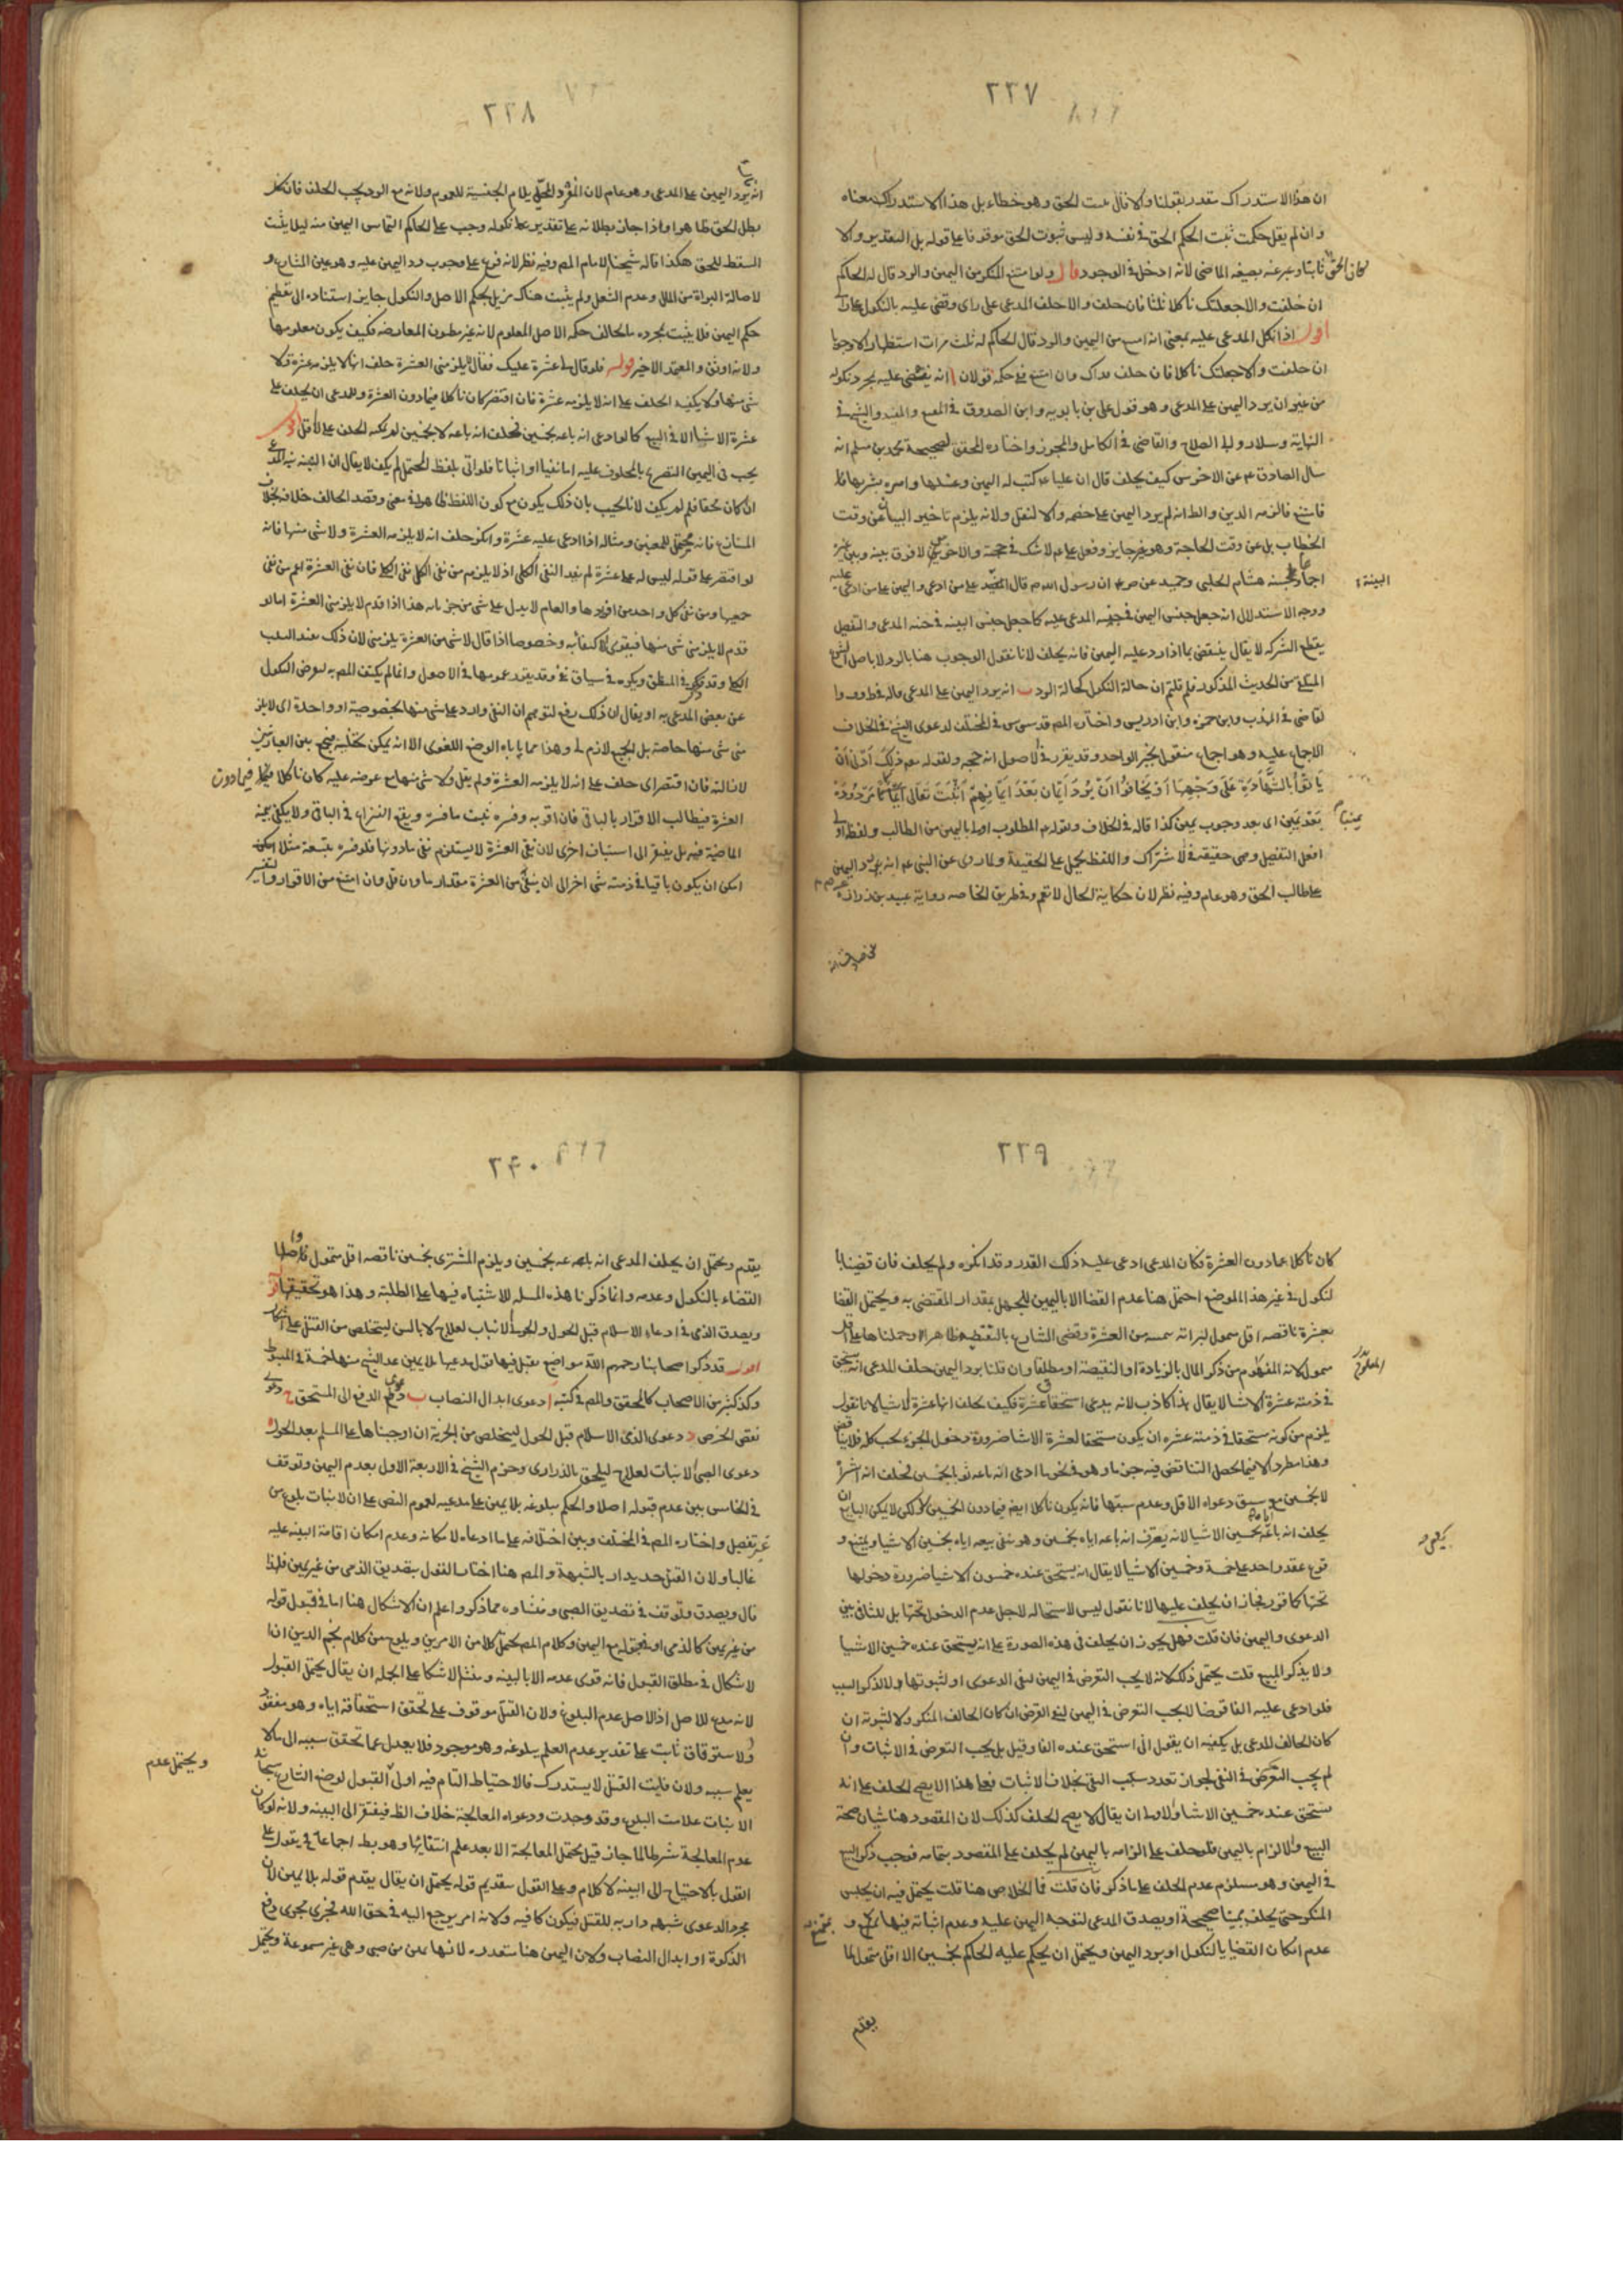 ٢٣٧
ان هذا الاستدراك مقدر بقولنا والا فال الحق وهو خطاء بل هذا الاستدراك معناه
وان لم يقل حكمت ثبت الحكم الحق في نفسه وليس ثبوت الحق موقوفا على قوله بل التقدير والا
كان الحق ثابتا وعبر عنه بصيغه الماضي لانه ادخل في الوجود قال ولو امتنع المنكر من اليمين والرد قال له الحاكم
ان حلفت والا جعلتك ناكلا ثلثا فان حلف والا احلف المدعي على راى وقضى عليه بالنكول على راى
اقول اذا نكل المدعى عليه بمعنى انه امتنع من اليمين والرد قال الحاكم له ثلث مرات استظهارا لا وجوبا
ان حلفت والا جعلتك ناكلا فان حلف فذاك وان امتنع ففي حكمه قولان ا انه يقضى عليه بمجرد نكوله
من غير ان يرد اليمين على المدعى وهو قول على بن بابويه وابن الصدوق في المقنع والمفيد والشيخ في
النهاية وسلار وابو الصلاح والقاضى في الكامل والموجز واختاره المحقق لصحيحة محمد بن مسلم انه
سال الصادق عم عن الاخرس كيف يحلف قال ان عليا عم كتب له اليمين وغسلها وامره بشربها فا
فامتنع فالزمه الدين والظ انه لم يرد اليمين على خصمه والا لنقل ولانه يلزم تاخير البيان عن وقت
الخطاب بل عن وقت الحاجة وهو غير جايز وفعل على عم لا شك في حجيته والاخرس لا فرق بينه وبين غيره
اجماعا ولحسنه هشام الحلبى وجميل عن ص عم ان رسول الله ص قال البينة على من ادعى واليمين على من ادعى عليه
البينة
ووجه الاستدلال انه جعل جنس اليمين في جنبه المدعى عليه كما جعل جنس البينه في جنبه المدعى والتفصيل
يقطع الشركه لا يقال ينتقض بما اذا رد عليه اليمين فانه يحلف لانا نقول الوجوب هنا بالرد لا باصل الشرع
المحكى من الحديث المذكور فلم قلتم ان حالة النكول كحالة الرد ب انه يرد اليمين على المدعى قاله في ط وف وا
لقاضى في المهذب وابن حمزه وابن ادريس واختاره المصر قدس سره في المختلف لدعوى الشيخ في الخلاف
الاجماع عليه وهو اجماع منقول بخبر الواحد وقد يقرر في الاصول انه حجه ولقوله تع ذلك ادنى ان
يأتوا بالشهادة على وجهها او يخافوا ان ترد ايمان بعد ايمانهم اثبت تعالى ايمانا مردودة
بعد يمين اى بعد وجوب يمين كذا قال في الخلاف ولقوله عم المطلوب اولى باليمين من الطالب ولفظ اولى
افعل التفضيل وهى حقيقه في الاشتراك واللفظ يحمل على الحقيقة ولما روى عن النبى عم انه رد اليمين
على طالب الحق وهو عام وفيه نظر لان حكاية الحال لا تعم وفي طريق الخاصه رواية عبيد بن زراره
٢٣٨
انه يرد اليمين على المدعى وهو عام لان المفرد المحلى بلام الجنسية للعموم ولانه مع الرد يجب الحلف فان نكل
بطل الحق ظاهرا واذا جاز بطلانه على تقدير نكوله وجب على الحاكم التماس اليمين منه ليلا يثبت
السقط للحق هكذا قاله شيخنا الامام المصر وفيه نظر لانه فرع على وجوب رد اليمين عليه وهو عين المتنازع و
لاصالة البراة من المال وعدم الشغل ولم يثبت هناك مزيل لحكم الاصل والنكول جايز استناده الى تعظيم
حكم اليمين فلا يثبت بمجرده ما يخالف حكمه الاصل المعلوم لانه غير مظنون المعارضه فكيف يكون معلومها
ولانه اوثق والمعتمد الاخير قوله فلو قال لى عشرة عليك فقال لا يلزمنى العشرة حلف انها لا يلزمه عشرة ولا
شى منها ولا يكفيه الحلف على انه لا يلزمه عشرة فان اقتصر كان ناكلا فيما دون العشرة وللمدعى ان يحلف على
عشرة الا شيئا الا في البيع كما لو ادعى انه باعه بخمسين فحلف انه باعه لا بخمسين لم يمكنه الحلف على الاقل اقول
يجب في اليمين التصريح بالمحلوف عليه اما نفيا او اثباتا فلو اتى بلفظ المحتمل لم يكف لا يقال ان اليمين نية المدعى
ان كان محقا فلم لم يكف لانا نجيب بان ذلك يكون مع كون اللفظ ظاهرا في معنى وقصد الحالف خلافه بخلاف
المتنازع فانه محتمل للمعنيين ومثاله اذا ادعى عليه عشرة وانكر حلف انه لا يلزمه العشرة ولا شى منها فانه
لو اقتصر على قوله ليس له على عشرة لم يفد النفى الكلى اذ لا يلزم من نفى الكل نفى الكلى فان نفى العشرة اعم من نفى
جميعها ومن نفى كل واحد من افرادها والعام لا يدل على شى من جزياته هذا اذا قدم لا يلزمنى العشرة اما لو
قدم لا يلزمنى شى منها فيقوى الاكتفا به وخصوصا اذا قال لا شى من العشرة يلزمنى لان ذلك يفيد السلب
الكلى وقد ذكر في المنطق ويكره في سياق نفى وقد يقرر عمومها في الاصول وانما لم يكتف المصر به لعرض النكول
عن بعض المدعى به او يقال ان ذلك رفع لتوهم ان النفى وارد على شى منها بخصوصية او واحدة اى لا يلز
منى شى منها خاصة بل الجميع لازم لى وهذا مما ياباه الوضع اللغوى الا انه يمكن تخيله فيجمع بين العبارتين
لازالته فان اقتصر اى حلف على انه لا يلزمه العشرة ولم يقل ولا شى منها مع عرضه عليه كان ناكلا فيما دون
العشرة فيطالب الاقرار بالباقى فان اقر به وفسره ثبت ما فسره ويقع النزاع في الباقى ولا يكفى يمينه
الماضية فيه بل يفتقر الى استيناف اخرى لان نفى العشرة لا يستلزم نفى ما دونها فلو فسره بتسعة مثلا امكن
امكن ان يكون باقيا في ذمته شى اخر الى ان ينتهى من العشرة مقدار ما وان قل وان امتنع من الاقرار والتفسير
٢٣٩
كان ناكلا عما دون العشرة فكان المدعى ادعى عليه ذلك القدر وقد انكره ولم يحلف فان قضينا با
لنكول في غير هذا الموضع احتمل هنا عدم القضا الا باليمين للجهل بمقدار المقتضى به ويحتمل القضا
بعشرة ناقصه اقل متمول
متمول لانه المفهوم من ذكر المال بالزيادة او النقيصة او مطلقا وان قلنا برد اليمين حلف المدعى انه يستحق
المعلوم
في ذمته عشرة الا شيئا لا يقال هذا كاذب لانه يدعى استحقاق عشرة فكيف يحلف انها عشرة الا شيئا لانا نقول
يلزم من كونه مستحقا في ذمته عشره ان يكون مستحقا لعشرة الا شيئا ضرورة دخول الجزء تحت كله فلا يتناقض
وهذا مطرد الا فيما يحصل التناقض فيه جزما وهو في نحو ما ادعى انه باعه ثوبا بخمسين فحلف انه اشتراه
لا بخمسين مع سبق دعواه الاقل وعدم سبقها فانه يكون ناكلا ايضا فيما دون الخمسين ولكن لا يمكن البايع ان
يحلف انه باعه بخمسين الا شيئا لانه يعترف انه باعه اياه بخمسين وهو نفى بيعه اياه بخمسين الا شيئا ويمتنع و
قوع عقد واحد على خمسة وخمسين الا شيئا لا يقال انه يستحق عنده خمسون الا شيئا ضرورة دخولها
تحتها كما قرر فجاز ان يحلف عليها لانا نقول ليس الاستحاله لاجل عدم الدخول تحتها بل للتنافى بين
الدعوى واليمين فان قلت فهل يجوز ان يحلف في هذه الصورة على انه يستحق عنده خمسين الا شيئا
ولا يذكر البيع قلت يحتمل ذلك لانه لا يجب التعرض في اليمين لنفى الدعوى او لثبوتها ولا لذكر السبب
فلو ادعى عليه الفا قرضا لا يجب التعرض في اليمين لنفى القرض ان كان الحالف المنكر ولا لثبوته ان
كان الحالف المدعى بل يكفيه ان يقول انى استحق عنده الفا وقيل بل يجب التعرض في الاثبات وان
لم يجب التعرض في النفى لجواز تعدد سبب النفى بخلاف الاثبات فعلى هذا لا يصح الحلف على انه
يستحق عنده خمسين الا شيئا والاولى ان يقال لا يصح الحلف كذلك لان المقصود هنا شيئان صحة
البيع والالزام باليمين فلو حلف على الزامه باليمين لم يحلف على المقصود بتمامه فوجب ذكر البيع
في اليمين وهو مستلزم عدم الحلف على ما ذكر فان قلت فما الخلاص هنا قلت يحتمل فيه ان يحبس
المنكر حتى يحلف يمينا صحيحة او يصدق المدعى لتوجه اليمين عليه وعدم اتيانه فيها بمقنع و
عدم امكان القضا يا لنكول او برد اليمين ويحتمل ان يحكم عليه الحاكم بخمسين الا اقل متمول لما
يقدم
٢٤٠
يقدم ويحتمل ان يحلف المدعى انه باعه بخمسين ويلزم المشترى بخمسين ناقصه اقل متمول
القضاء بالنكول وعدمه وانما ذكرنا هذه المسله للاشتباه فيها على الطلبة وهذا هو تحقيقها
ويصدق الذمى في ادعاء الاسلام قبل الحول والحربى الانبات لعلاج لا بالسن ليتخلص من القتل على اشكال
اقول قد ذكر اصحابنا رحمهم الله مواضع يقبل فيها قول مدعيها بلا يمين عد الشيخ منها خمسة في المبسوط
وكذ كثير من الاصحاب كالمحقق والمصر في كتبه ا دعوى ابدال النصاب ب دعوى الدفع الى المستحق ج دعوى
نقص الخرص د دعوى الذمى الاسلام قبل الحول ليتخلص من الجزية ان اوجبناها على المسلم بعد الحول ه
دعوى الصبى الانبات لعلاج ليلحق بالذرارى وجزم الشيخ في الاربعة الاول بعدم اليمين وتوقف
في الخامس بين عدم قبوله اصلا والحكم ببلوغه بلا يمين على مدعيه لعموم النص على ان الانبات بلوغ من
غير تفصيل واختاره المصر في المختلف وبين احلافه على ما ادعاه لامكانه وعدم امكان اقامة البينه عليه
غالبا ولان القتل حد يدار بالشبهة والمصر هنا اختار القول بتصديق الذمى من غير يمين فلهذا
قال ويصدق وتوقف في تصديق الصبى ومنشاوه مما ذكر واعلم ان الاشكال هنا اما في قبول قوله
من غير يمين كالذمى او في قبوله مع اليمين وكلام المصر يحتمل كلا من الامرين ويلوح من كلام نجم الدين ان ا
لاشكال في مطلق القبول فانه قوى عدمه الا بالبينه ومنشا الاشكال على الجمله ان يقال يحتمل القبول
لانه مدع للاصل اذ الاصل عدم البلوغ ولان القتل موقوف على تحقق استحقاقه اياه وهو مفقود
والاسترقاق ثابت على تقدير عدم العلم ببلوغه وهو موجود فلا يعدل عما تحقق سببه الى ما لا
يعلم سببه ولان فايت القتل لا يستدرك فالاحتياط التام فيه اولى القبول لوضع الشارع
ويحتمل عدم
الانبات علامت البلوغ وقد وجدت ودعواه المعالجة خلاف الظ فيفتقر الى البينه ولانه لو كان
عدم المعالجة شرطا لما جاز قبل محتمل المعالجة الا بعد علم انتفائها وهو بط اجماعا
القول بالاحتياج الى البينه لا كلام وعلى القول بتقديم قوله يحتمل ان يقال يقدم قوله بلا يمين لان
مجرد الدعوى شبهه دارية للقتل فيكون كافيه ولانه امر يرجع اليه في حق الله فجرى مجرى دفع
الزكوة او ابدال النصاب ولان اليمين هنا متعذره لانها يمين من صبى وهى غير مسموعة ويحتمل